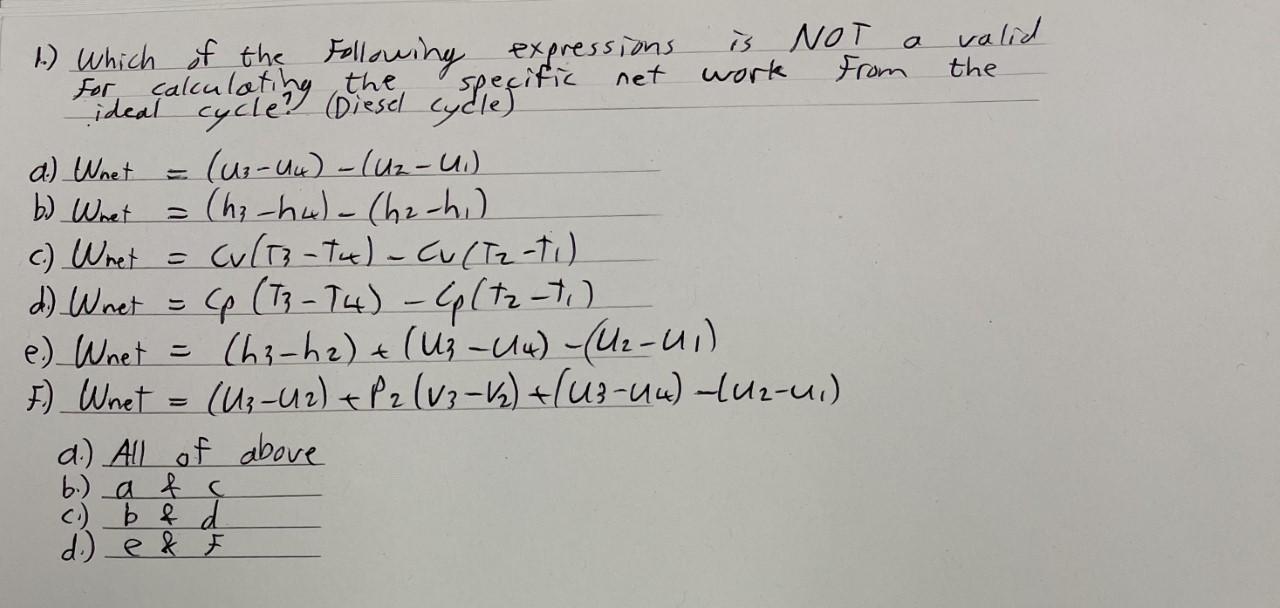 1.) Which of the Following expressions is NOT a valid
For calculating the specific net work From the
ideal cycle? (Diesel cycle)
a.) Wnet = (u3-u4) - (u2-u1)
b.) Wnet = (h3-h4) - (h2-h1)
c.) Wnet = Cv(T3-T4) - Cv(T2-T1)
d.) Wnet = Cp (T3-T4) - Cp(T2-T1)
e.) Wnet = (h3-h2) + (U3-U4) - (U2-U1)
F.) Wnet = (U3-U2) + P2 (V3-V2) + (U3-U4) - (U2-U1)
a.) All of above
b.) a & c
c.) b & d
d.) e & F